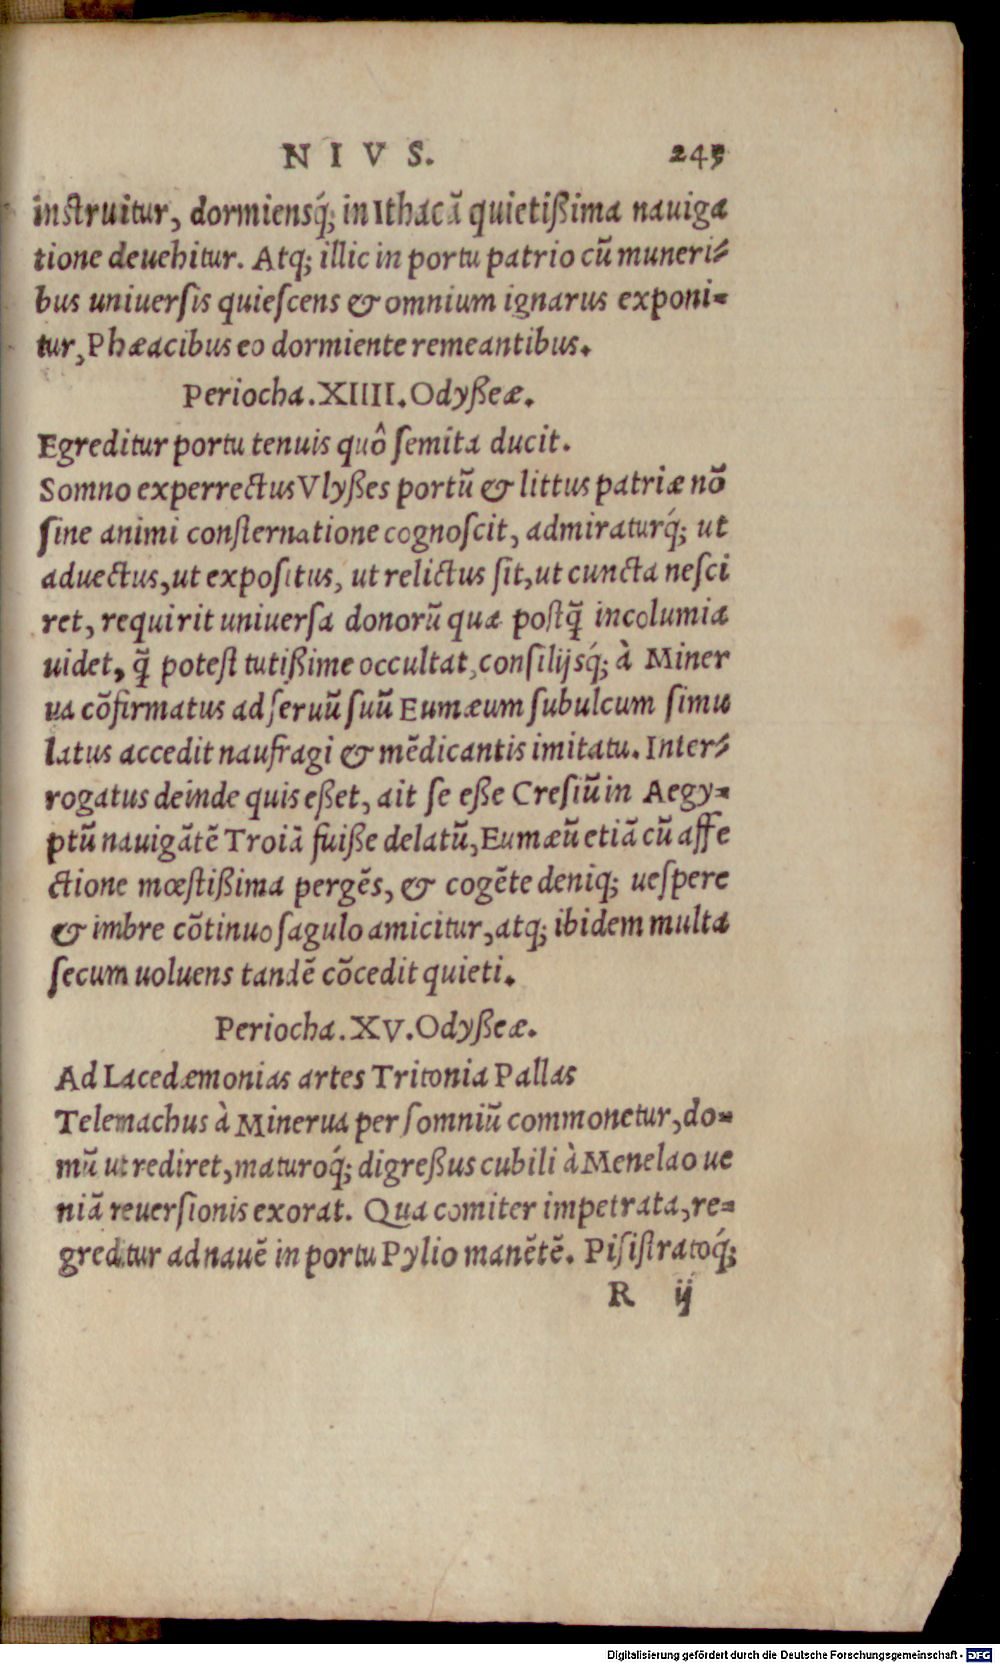 NIVS. 245
instruitur, dormiensq́; in Ithacā quietißima nauiga
tione deuehitur. Atq; illic in portu patrio cū muneri-
bus uniuersis quiescens & omnium ignarus exponi-
tur, Phæacibus eo dormiente remeantibus.
Periocha. XIIII. Odyßeæ.
Egreditur portu tenuis quô semita ducit.
Somno experrectus Vlyßes portū & littus patriæ nō
sine animi consternatione cognoscit, admiraturq́; ut
aduectus, ut expositus, ut relictus sit, ut cuncta nesci
ret, requirit uniuersa donorū quæ postq̄ incolumia
uidet, q̄ potest tutißime occultat, consilijsq́; à Miner
ua cōfirmatus ad seruū suū Eumæum subulcum simu
latus accedit naufragi & mēdicantis imitatu. Inter-
rogatus deinde quis eßet, ait se eße Cresiū in Aegy-
ptū nauigātē Troiā fuiße delatū, Eumæū etiā cū affe
ctione mœstißima pergēs, & cogēte deniq; uespere
& imbre cōtinuo sagulo amicitur, atq; ibidem multa
secum uoluens tandē cōcedit quieti.
Periocha. XV. Odyßeæ.
Ad Lacedæmonias artes Tritonia Pallas
Telemachus à Minerua per somniū commonetur, do-
mū ut rediret, maturoq́; digreßus cubili à Menelao ue
niā reuersionis exorat. Qua comiter impetrata, re-
greditur ad nauē in portu Pylio manētē. Pisistratoq́;
R ij
Digitalisierung gefördert durch die Deutsche Forschungsgemeinschaft - DFG